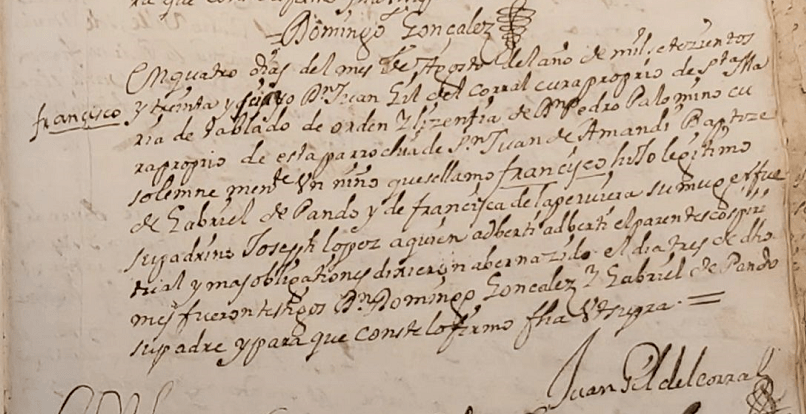 ra que conste
=Domingo Gonçalez
Enquatro dias del mes de Agosto del año de mil setezientos
francisco
y treinta y seis yo Dn. Juan Gil del Corral cura proprio de Sta Ma
ria de tablado de orden y lizenzia de Dn Pedro Palomino cu
ra proprio de esta parrochia de Sn. Juan de Amandi Baptize
solemne mente Vn niño que se llamo francisco hijo legitimo
de Gabriel de Pando y de francisca de la peruiera su muger fue
su padrino Joseph lopez a quien adberti adberti el parentesco spiri
tual y mas obligationes dixeron aber nazido el dia tres de dho
mes fueron testigos Dn. Domingo Goncalez y Gabriel de Pando
su padre y para que conste lo firmo fha Vt supra =
Juan Gil del corral